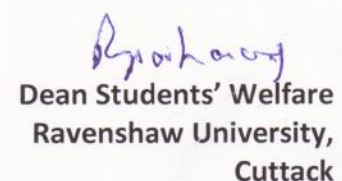 Dean Students' Welfare
Ravenshaw University,
Cuttack